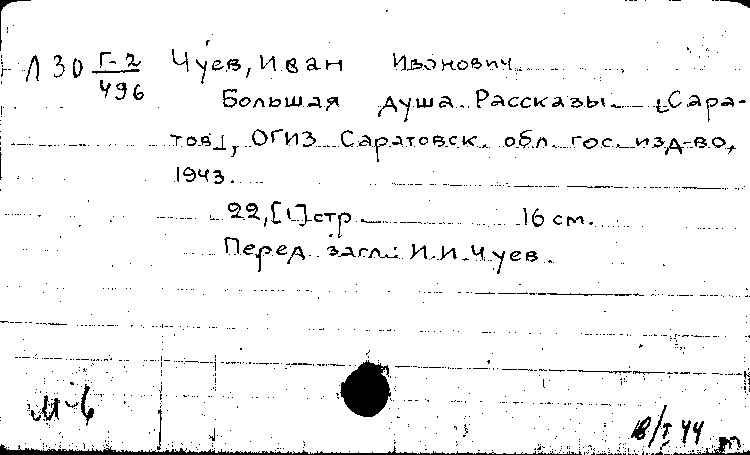 Л 30 Г-2/496 Чуев, Иван Иванович
Большая душа. Рассказы. [Сара-
тов], ОГИЗ Саратовск. обл. гос. изд-во,
1943.
22, [1] стр. 16 см.
Перед загл.: И.И. Чуев.
М-6
18/I 44